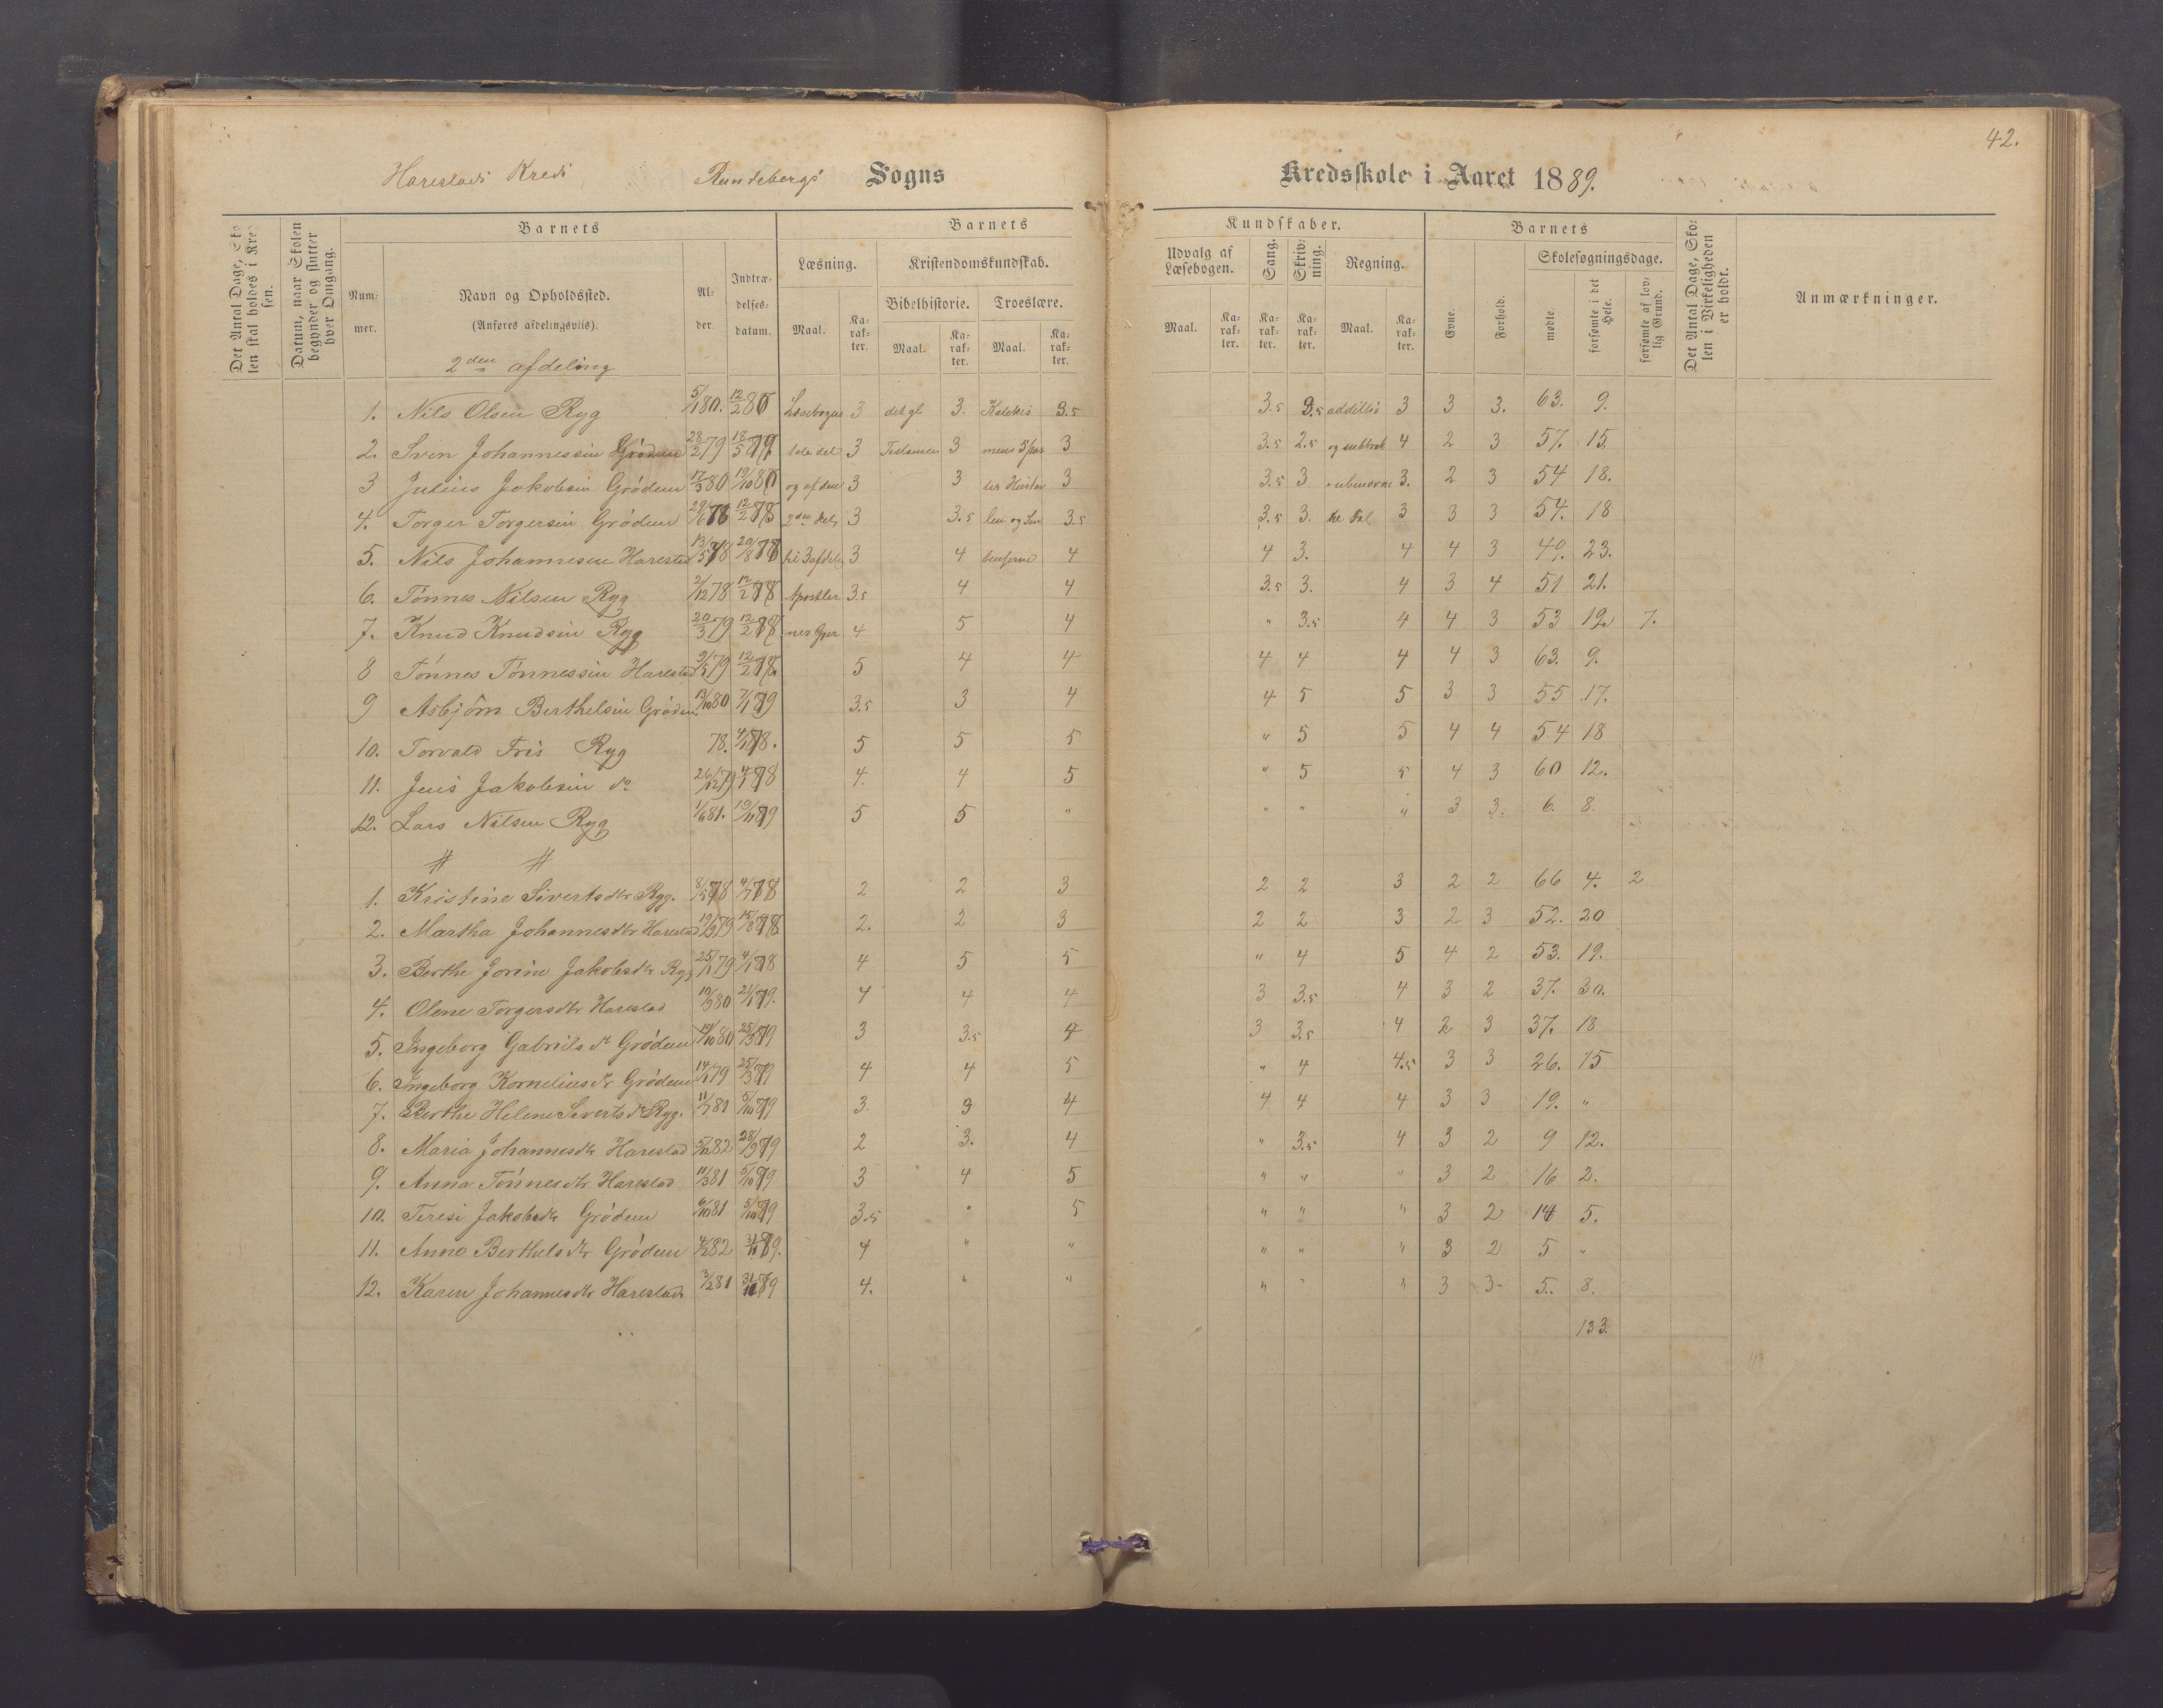 42.
Harestads Kreds Randebergs Sogns Kredsskole i Aaret 1889.
Det Antal Dage, Sko
len skal holdes i Kred
sen.
Datum, naar Skolen
begynder og slutter
hver Omgang.
Barnets
Num-
mer.
Navn og Opholdssted.
(Anføres afdelingsvis).
2den afdeling
Al-
der.
Indtræ-
delses-
datum.
Barnets
Læsning.
Maal.
Ka-
rak-
ter.
Kristendomskundskab.
Bibelhistorie.
Maal.
Ka-
rak-
ter.
Troeslære.
Maal.
Ka-
rak-
ter.
Kundskaber.
Udvalg af
Læsebogen.
Maal.
Ka-
rak-
ter.
Sang.
Ka-
rak-
ter.
Skriv-
ning.
Ka-
rak-
ter.
Regning.
Maal.
Ka-
rak-
ter.
Barnets
Evne.
Forhold.
Skolesøgningsdage.
mødte.
forsømte i det
Hele.
forsømte af lov-
lig Grund.
Det Antal Dage, Sko-
len i Virkeligheden
er holdt.
Anmærkninger.
1. Nils Olsen Ryg 5/1 80. 12/2 Læsebogens 3 det gl 3. Katekis 3.5 3.5 additio 3 3 3. 63. 9.
2. Sven Johannessen Grødem 28/2 79 18/5 1ste del 3 Testamen 3 mens 5 par 3 3.5 2.5 og subtrak 4 2 3 57. 15.
3 Julius Jakobsen Grødem 17/3 80 19/10 og af den 3 3 3 3.5 3 3. 2 3 54 18.
4. Torger Torgersen Grødem 78 12/2 2den dels 3 3.5 3.5 3.5 3. Tal 3 3 3 54. 18
5. Nils Johannesen Harestad 13/5 78 20/8 til 3 afdeling 3 4 4 4 3. 4 4 3 49. 23.
6. Tønnes Nilsen Ryg 2/12 78 12/2 Apostler 3.5 4 4 3.5 3. 4 3 4 51 21.
7. Knud Knudsen Ryg 20/3 79 12/2 nes Gjer 4 5 4 " 3.5 4 4 3 53 19. 7.
8 Tønnes Tønnessen Harestad 79 12/2 5 4 4 4 4 4 4 3 63. 9.
9 Asbjörn Berthelsen Grødem 13/10 80 7/1 3.5 3 4 4 5 5 3 3 55 17.
10. Torvald Fris Ryg 78. 5 5 5 " 5 5 4 4 54 18
11. Jens Jakobsen do 26/12 79 4. 4 5 " 5 5 4 3 60 12.
12. Lars Nilsen Ryg 1/6 81. 19/11 5 5 " " " " 3 3. 6. 8.
# #
1. Kristine Sivertsdtr Ryg. 8/5 78 2 2 3 2 2 3 2 2 66 4. 2
2. Martha Johannesdtr Harestad 79 15/8 2. 2 3 2 2 3 2 3 52. 20
3. Berthe Jorine Jakobsdtr Ryg 25/1 79 4 5 5 " 4 5 4 2 53. 19.
4. Olene Torgersdtr Harestad 19/9 80 21/1 4 4 4 3 3.5 4 3 2 37. 30.
5. Ingeborg Gabrielsdtr Grødem 80 25/3 3 3.5 4 3 3.5 4 2 3 37. 18
6. Ingeborg Korneliusdtr Grødem 14/1 79 25/3 4 4 5 " 4 4.5 3 3 26. 15
7. Berthe Helene Sivertsdtr Ryg. 11/7 81 5/10 3. 3 4 4 4 4 3 3 19. "
8. Maria Johannesdtr Harestad 82 28/9 2 3. 4 " 3.5 4 3 2 9 12.
9. Anna Tønnesdtr Harestad 11/3 81 5/10 3 4 5 " " " 3 2 16 2.
10. Teresi Jakobsdtr Grødem 6/10 81 5/10 3.5 " 5 " " " 3 2 14 5.
11. Anne Berthelsdtr Grødem 82 4 " " " " " 3 2 5 "
12. Karen Johannesdtr Harestad. 3/2 81 4. " " " " 3 3 5. 8.
133.